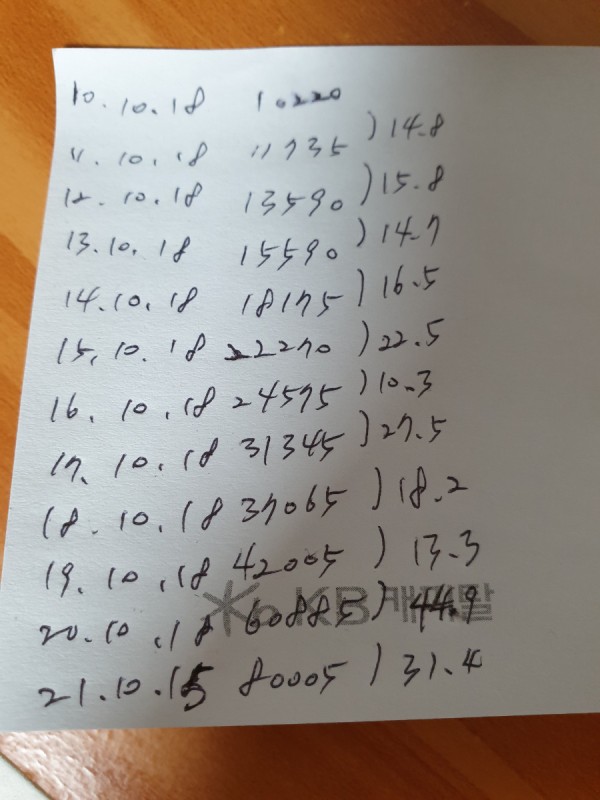 10.10.18 10220
) 14.8
11.10.18 11735
) 15.8
12.10.18 13590
) 14.7
13.10.18 15590
) 16.5
14.10.18 18175
) 22.5
15.10.18 22270
) 10.3
16.10.18 24575
) 27.5
17.10.18 31345
) 18.2
18.10.18 37065
) 13.3
19.10.18 42005
) 44.9
KB캐피탈
20.10.18 60885
) 31.4
21.10.15 80005